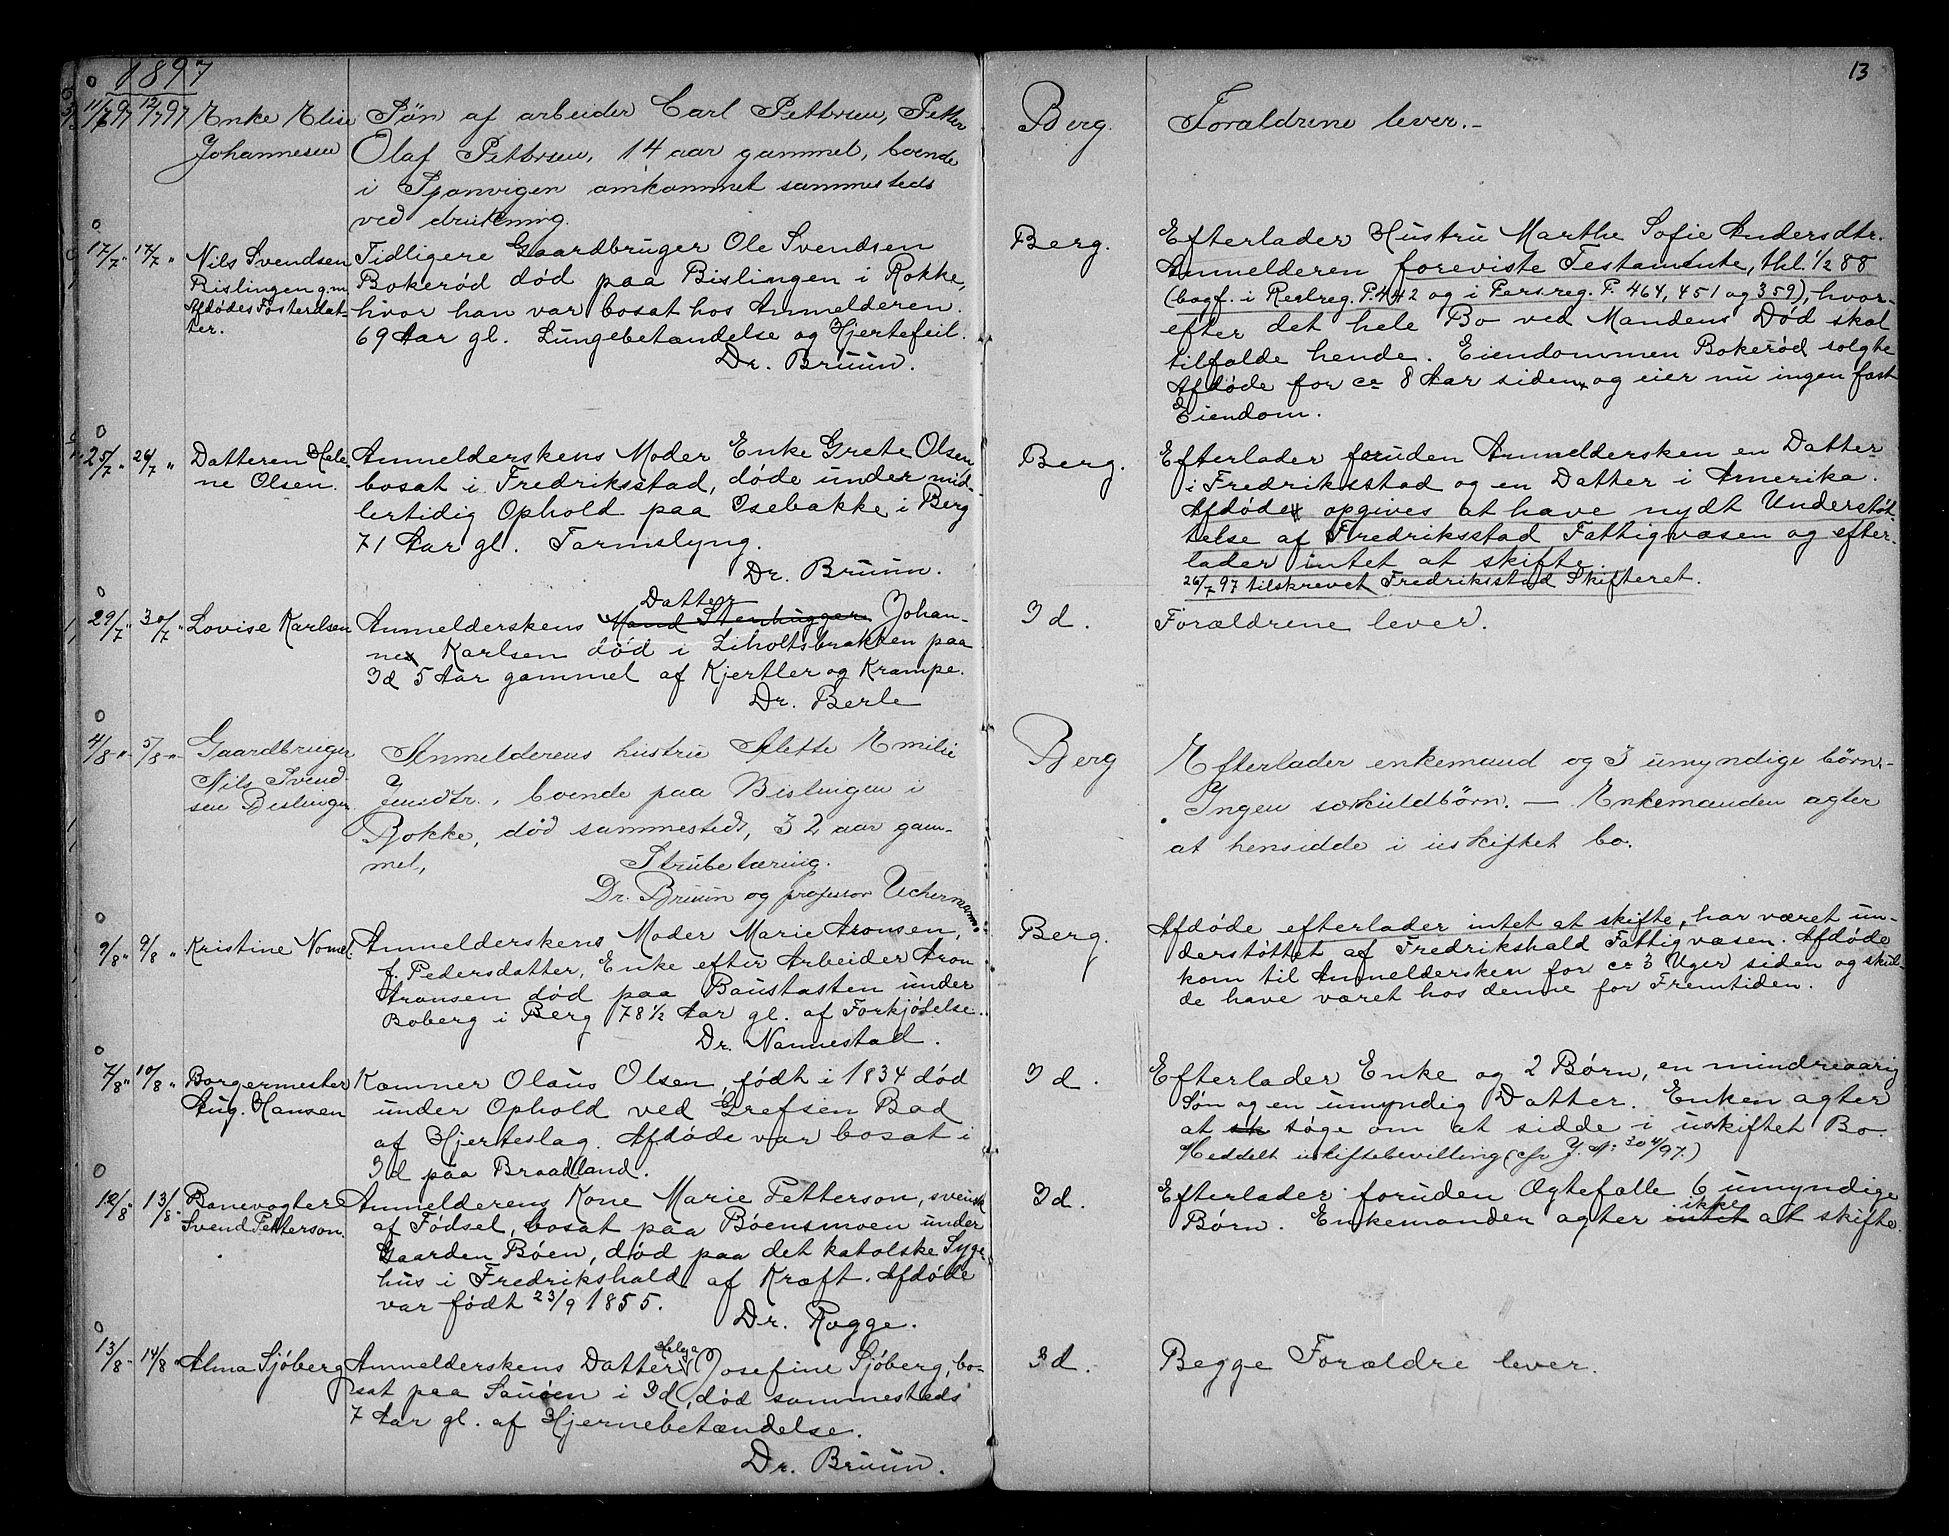 1897
13
11/6 97 12/7 97 Enke Elise
Johannesen
Søn af arbeider Carl Pettersen, Petter
Olaf Pettersen, 14 aar gammel, boende
i Sponvigen omkommet sammesteds
ved drukning.
Berg.
Forældrene lever.-
17/7 " 17/7 " Nils Svendsen
Bislingen g.m.
Afdødes Fosterdat-
ter.
Tidligere Gaardbruger Ole Svendsen
Bokerød død paa Bislingen i Rokke,
hvor han var bosat hos Anmelderen.
69 Aar gl. Lungebetændelse og Hjertefeil.
Dr. Bruun.
Berg.
Efterlader Hustru Marthe Sofie Andersdtr.
Anmelderen foreviste Testamente, thl. 1/2 88
(bogf. i Realreg. P. 442 og i Persreg. P. 464, 451 og 359), hvor-
efter det hele Bo ved Mandens Død skal
tilfalde hende. Eiendommen Bokerød solgte
Afdøde for ca 8 Aar siden og eier nu ingen fast
Eiendom.
25/7 " 26/7 " Datteren Hele-
ne Olsen.
Anmelderskens Moder Enke Grete Olsen
bosat i Fredriksstad, døde under mid-
lertidig Ophold paa Isebakke i Berg
71 Aar gl. Tarmslyng.
Dr. Bruun.
Berg.
Efterlader foruden Anmeldersken en Datter
i Fredriksstad og en Datter i Amerika.
Afdøde opgives at have nydt Understøt-
telse af Fredriksstad Fattigvæsen og efter-
lader intet at skifte.
26/7 97 tilskrevet Fredriksstad Skifteret.
29/7 " 30/7 " Lovise Karlsen
Datter
Anmelderskens Mand Stenhugger Johan-
ne Karlsen død i Liholtsbrakken paa
Id 5 Aar gammel af Kjertler og Krampe.
Dr. Berle
Id.
Forældrene lever.
4/8 -"- 5/8 -"- Gaardbruger
Nils Svend-
sen Bislingen
Anmelderens hustru Alette Emilie
Jensdtr., boende paa Bislingen i
Rokke, død sammesteds, 32 aar gam-
mel, Strubetæring.
Dr. Bruun og professor Uchermann.
Berg
Efterlader enkemand og 3 umyndige børn.-
Ingen særkuldbørn. — Enkemanden agter
at hensidde i uskiftet bo.
9/8 " 9/8 " Kristine Nomel.
Anmelderskens Moder Marie Aronsen,
f. Pedersdatter, Enke efter Arbeider Aron
Aronsen død paa Baustasten under
Boberg i Berg 78 1/2 Aar gl. af Forkjølelse.
Dr. Nannestad.
Berg.
Afdøde efterlader intet at skifte, har været un-
derstøttet af Fredrikshald Fattigvæsen. Afdøde
kom til Anmeldersken for ca 3 Uger siden og skul-
de have været hos denne for Fremtiden.
7/8 " 10/8 " Borgermester
Aug. Hansen
Kæmner Olaus Olsen, født i 1834 død
under Ophold ved Grefsen Bad
af Hjerteslag. Afdøde var bosat i
Id paa Braatland.
Id.
Efterlader Enke og 2 Børn, en mindreaarig
Søn og en umyndig Datter. Enken agter
at sk søge om at sidde i uskiftet Bo.
Meddelt uskiftebevilling (cfr J. No 304/97.)
12/8 " 13/8 " Banevogter
Svend Petterson.
Anmelderens Kone Marie Petterson, svensk
af Fødsel, bosat paa Bøensmoen under
Gaarden Bøen, død paa det katolske Syge-
hus i Fredrikshald af Kræft. Afdøde
var født 23/9 1855.
Dr. Rogge.
Id.
Efterlader foruden Ægtefælle 6 umyndige
ikke
Børn. Enkemanden agter intet at skifte.
13/8 - 14/8 " Alma Sjøberg
Helga
Anmelderskens Datter Josefine Sjøberg, bo-
sat paa Sauøen i Id, død sammesteds
7 Aar gl. af Hjernebetændelse.
Dr. Bruun.
Id.
Begge Forældre lever.